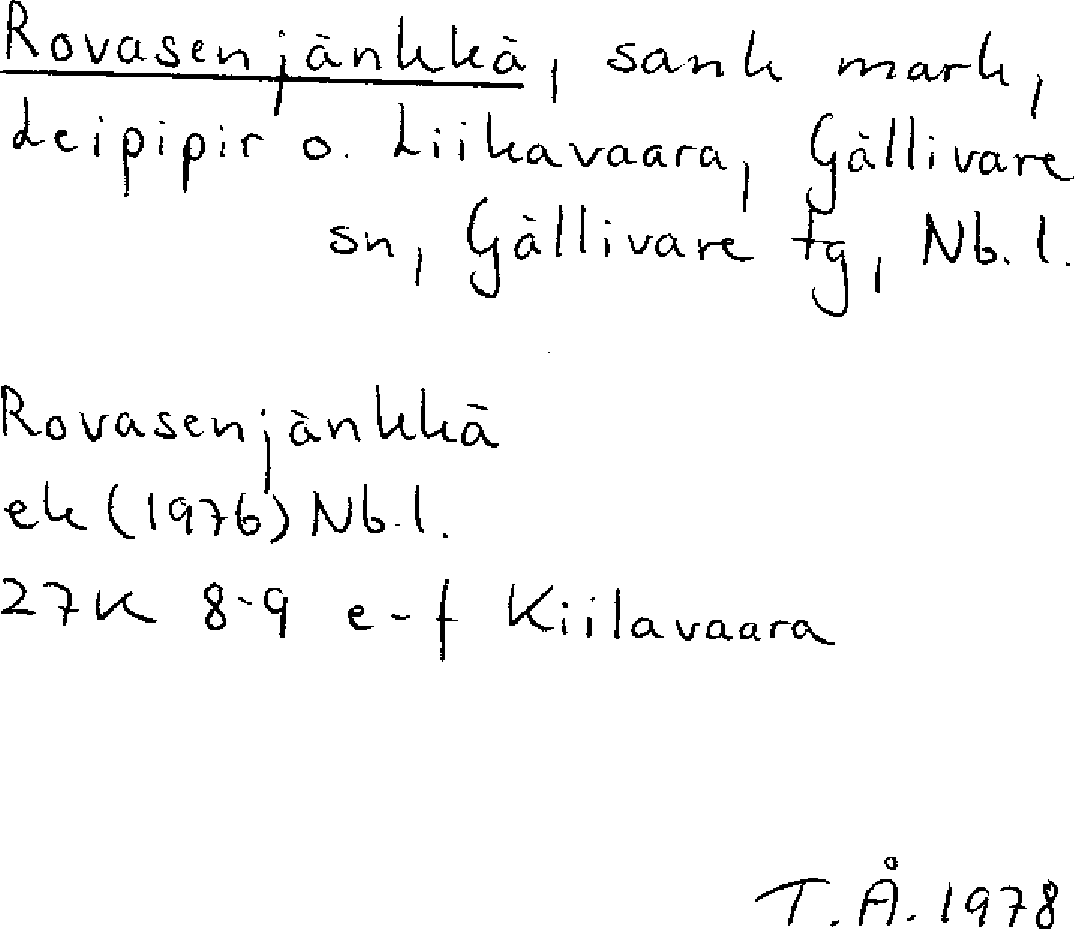 Rovasenjänkkä, sank mark,
Leipipir o. Liikavaara, Gällivare
sn, Gällivare tg, Nb. l.
Rovasenjänkkä
ek (1976) Nb. l.
27K 8-9 e-f Kiilavaara
T. Å. 1978